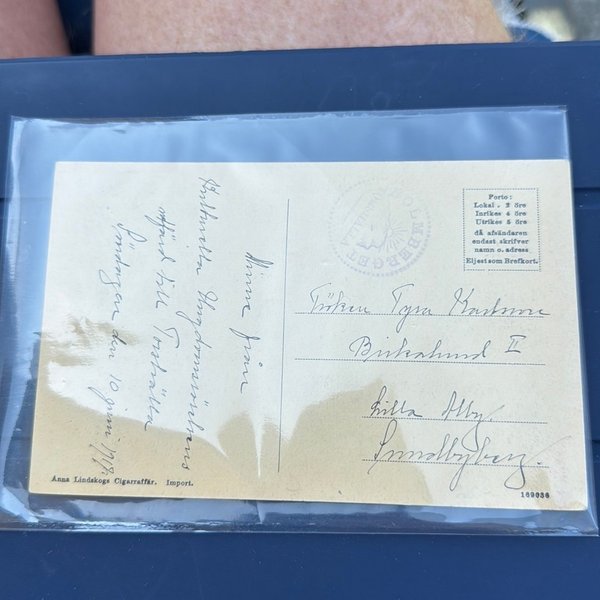 Minne från
Kulturella Ungdomsrörelsens
utfärd till Torshälla
Söndagen den 10 juni 1917.
BOLMERBERGET
Porto:
Lokal . 2 öre
Inrikes 4 öre
Utrikes 5 öre
då afsändaren
endast skrifver
namn o. adress
Eljest som Brefkort.
Fröken Tyra Karlsson
Birkalund II
Lilla Alby.
Sundbyberg.
Anna Lindskogs Cigarraffär. Import.
169036